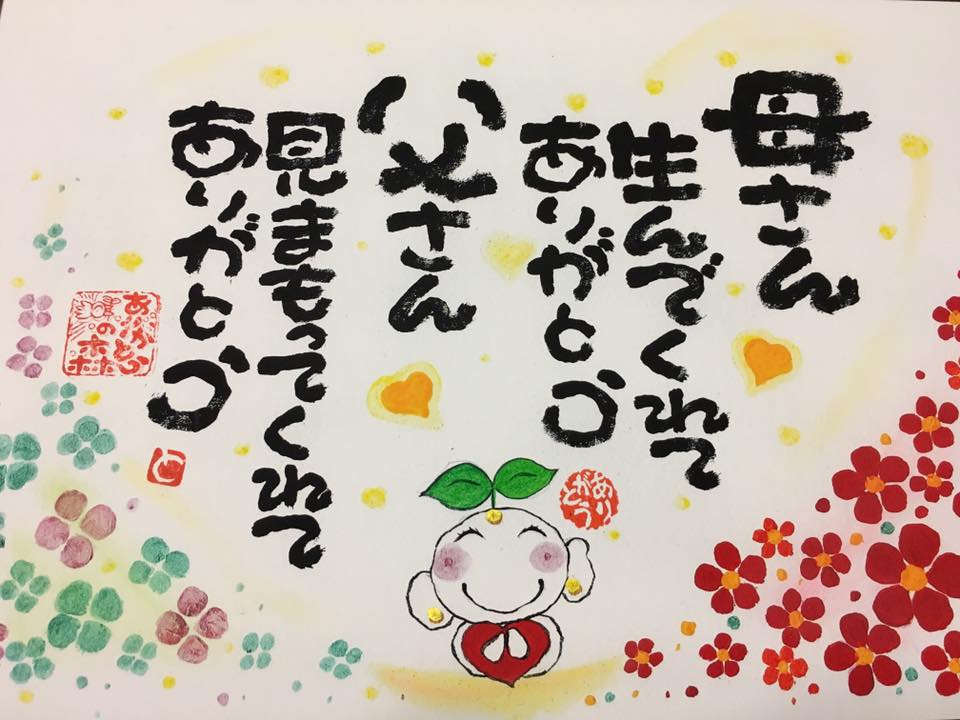 母さん
生んでくれて
ありがとう
父さん
見まもってくれて
ありがとう
ありがとう
の森
ありがとう